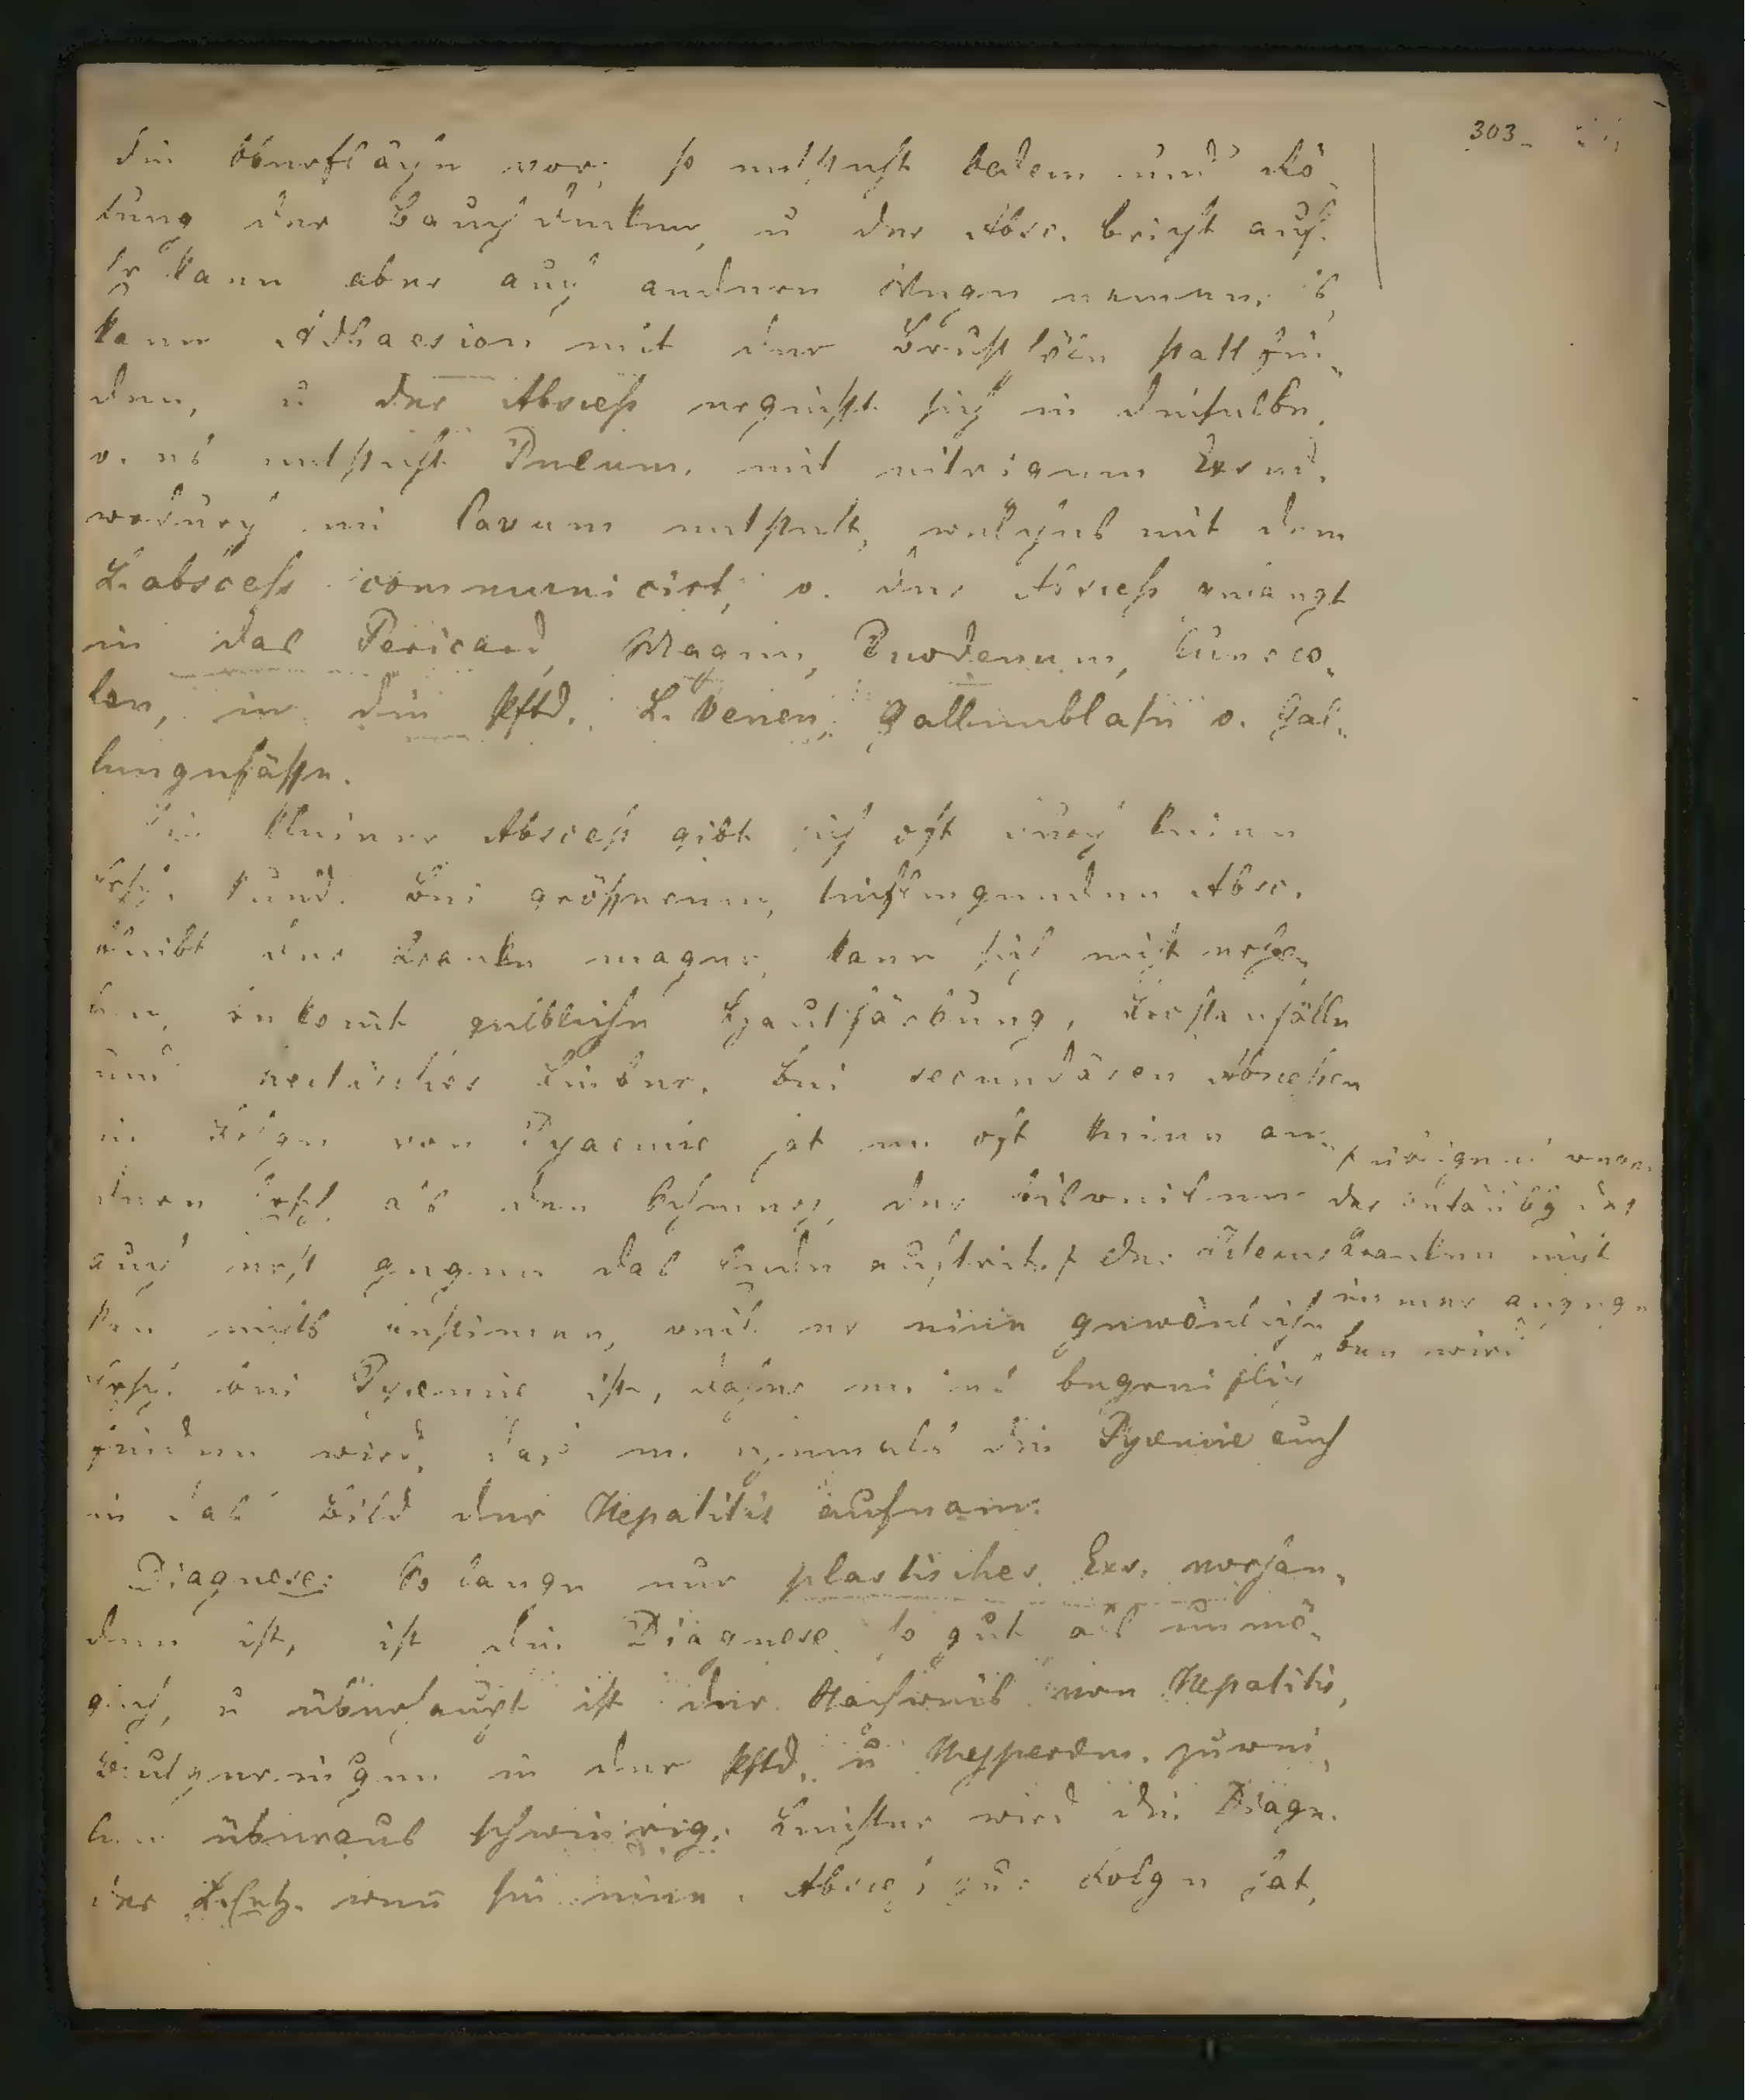 303.
die Oberfläche vor; so entsteht Oedem und Rö-
tung der Bauchdecken, u der Absc. bricht auf.
Er kann aber auch anderen Wegen nemen; es
kann Adhaesion mit der Brusthöle stattfin-
den, u der Abscess ergiesst sich in dieselbe,
o. es entsteht Pneum. mit eitrigem Exsud.
wodurch ein Cavum entsteht, welches mit dem
L.abscess communicirt, o. der Abscess gelangt
in das Pericard, Magen, Duodenum, Querco-
lon, in die Pftd. L.Venen, Gallenblase o. Gal-
lengefässe.
Ein kleiner Abscess gibt sich oft durch keine
Ersch. kund. Bei grösseren, tiefliegenden Absc.
bleibt der Kranke mager, kann sich nicht erho-
len, bekomt gelbliche Hautfärbung, Frostanfälle
und hectisches Fieber. Bei secundären Abscessen
in Folge von Pyaemie hat man oft keine an-
deren Ersch. als den Schmerz, der bisweilen
auch erst gegen das Ende auftritt. Der Icterus
kan nichts bestimmen, weil er eine gewönliche
Ersch. bei Pyaemie ist, daher man es begreiflich
finden wird, dass man ehemals die Pyaemie auch
in das Bild der Hepatitis aufnam.
übrigens wenn
der
Kranken nicht
immer angege-
ben wird
Diagnose: So lange nur plastisches Exs. vorhan-
den ist, ist die Diagnose so gut als unmö-
glich, u überhaupt ist der Nachweis von Hepatitis,
Blutgerinungen in der Pftd. u Hypperäm. zuwei-
len überaus schwierig. Leichter wird die Diagn.
der L.entz. wenn sie einen Abscess zur Folge hat,